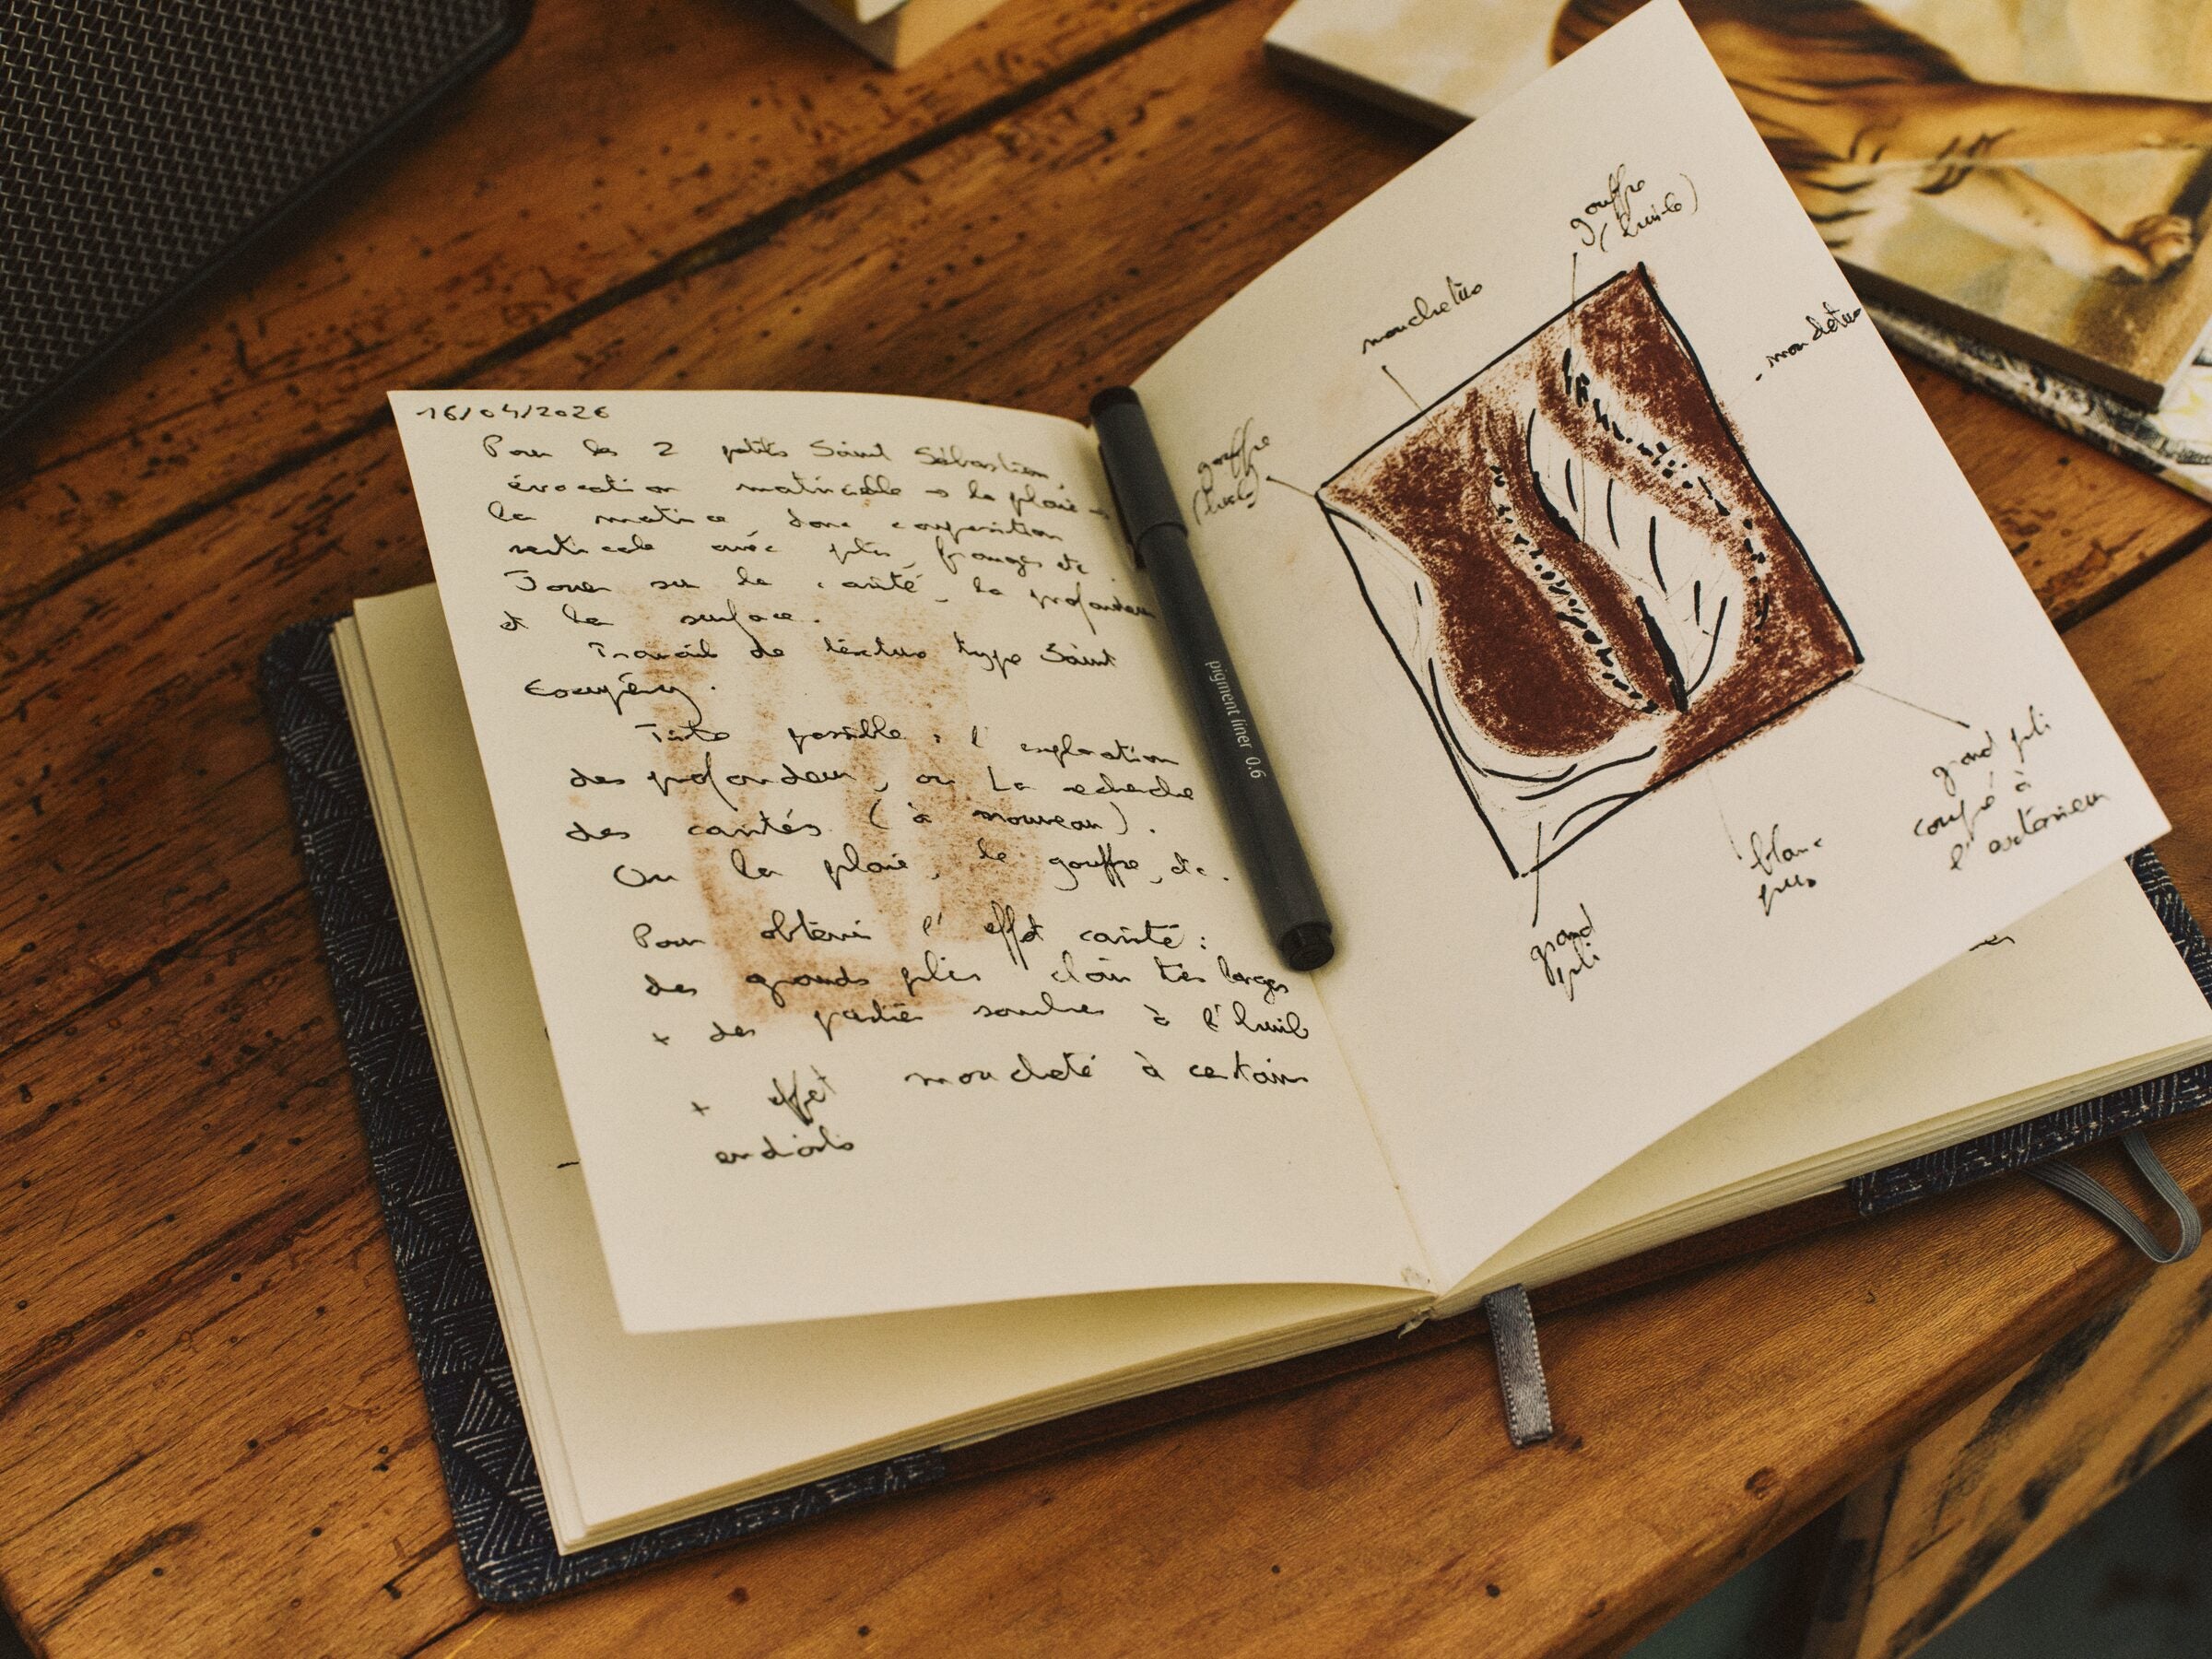 16/04/2026
Pour les 2 petits Saint Sébastien
évocation matricielle → la plaie →
la matrice, donc composition
verticale avec plis, franges etc.
Jouer sur la cavité, la profondeur
et la surface.
Travail de texture type Saint
Exupéry.
Titre possible : l'exploration
des profondeurs, ou La recherche
des cavités (à nouveau).
Ou la plaie, le gouffre, etc.
Pour obtenir l'effet cavité :
des grands plis clairs très larges
+ des parties sombres à l'huile
+ effet moucheté à certains
endroits
pigment liner 0.6
gouffre
(huile)
mouchetures
- mouchetures
gouffre
(huile)
grand pli
coupé à
l'extérieur
blanc
purs
grand
pli